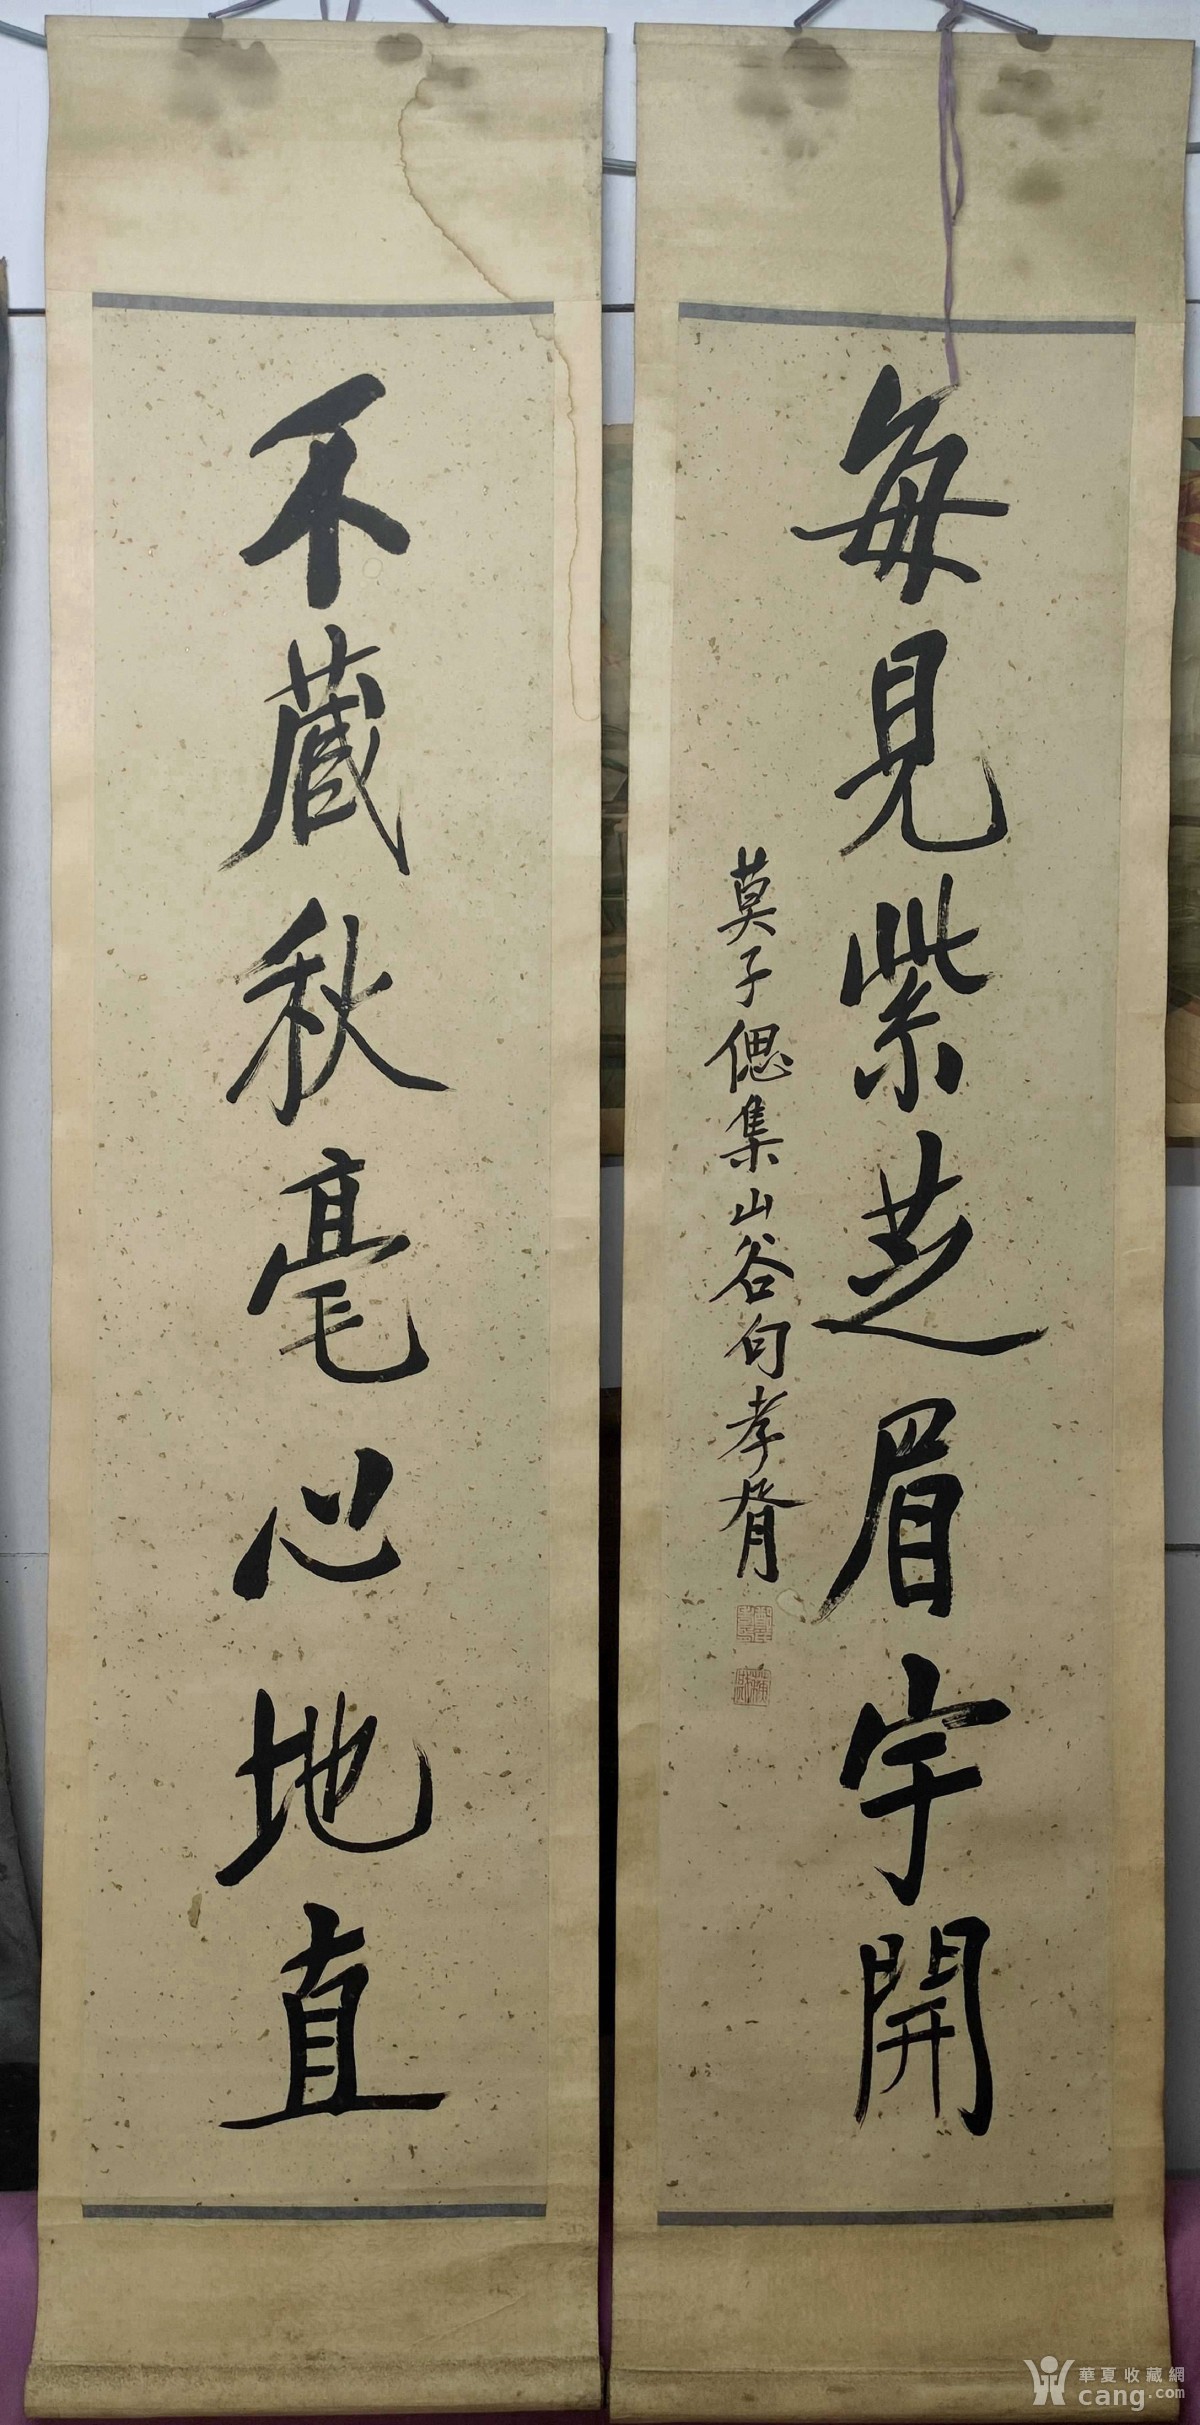 每見紫芝眉宇開
莫子偲集山谷句孝胥
不蔵秋毫心地直
華夏收藏網
cang.com